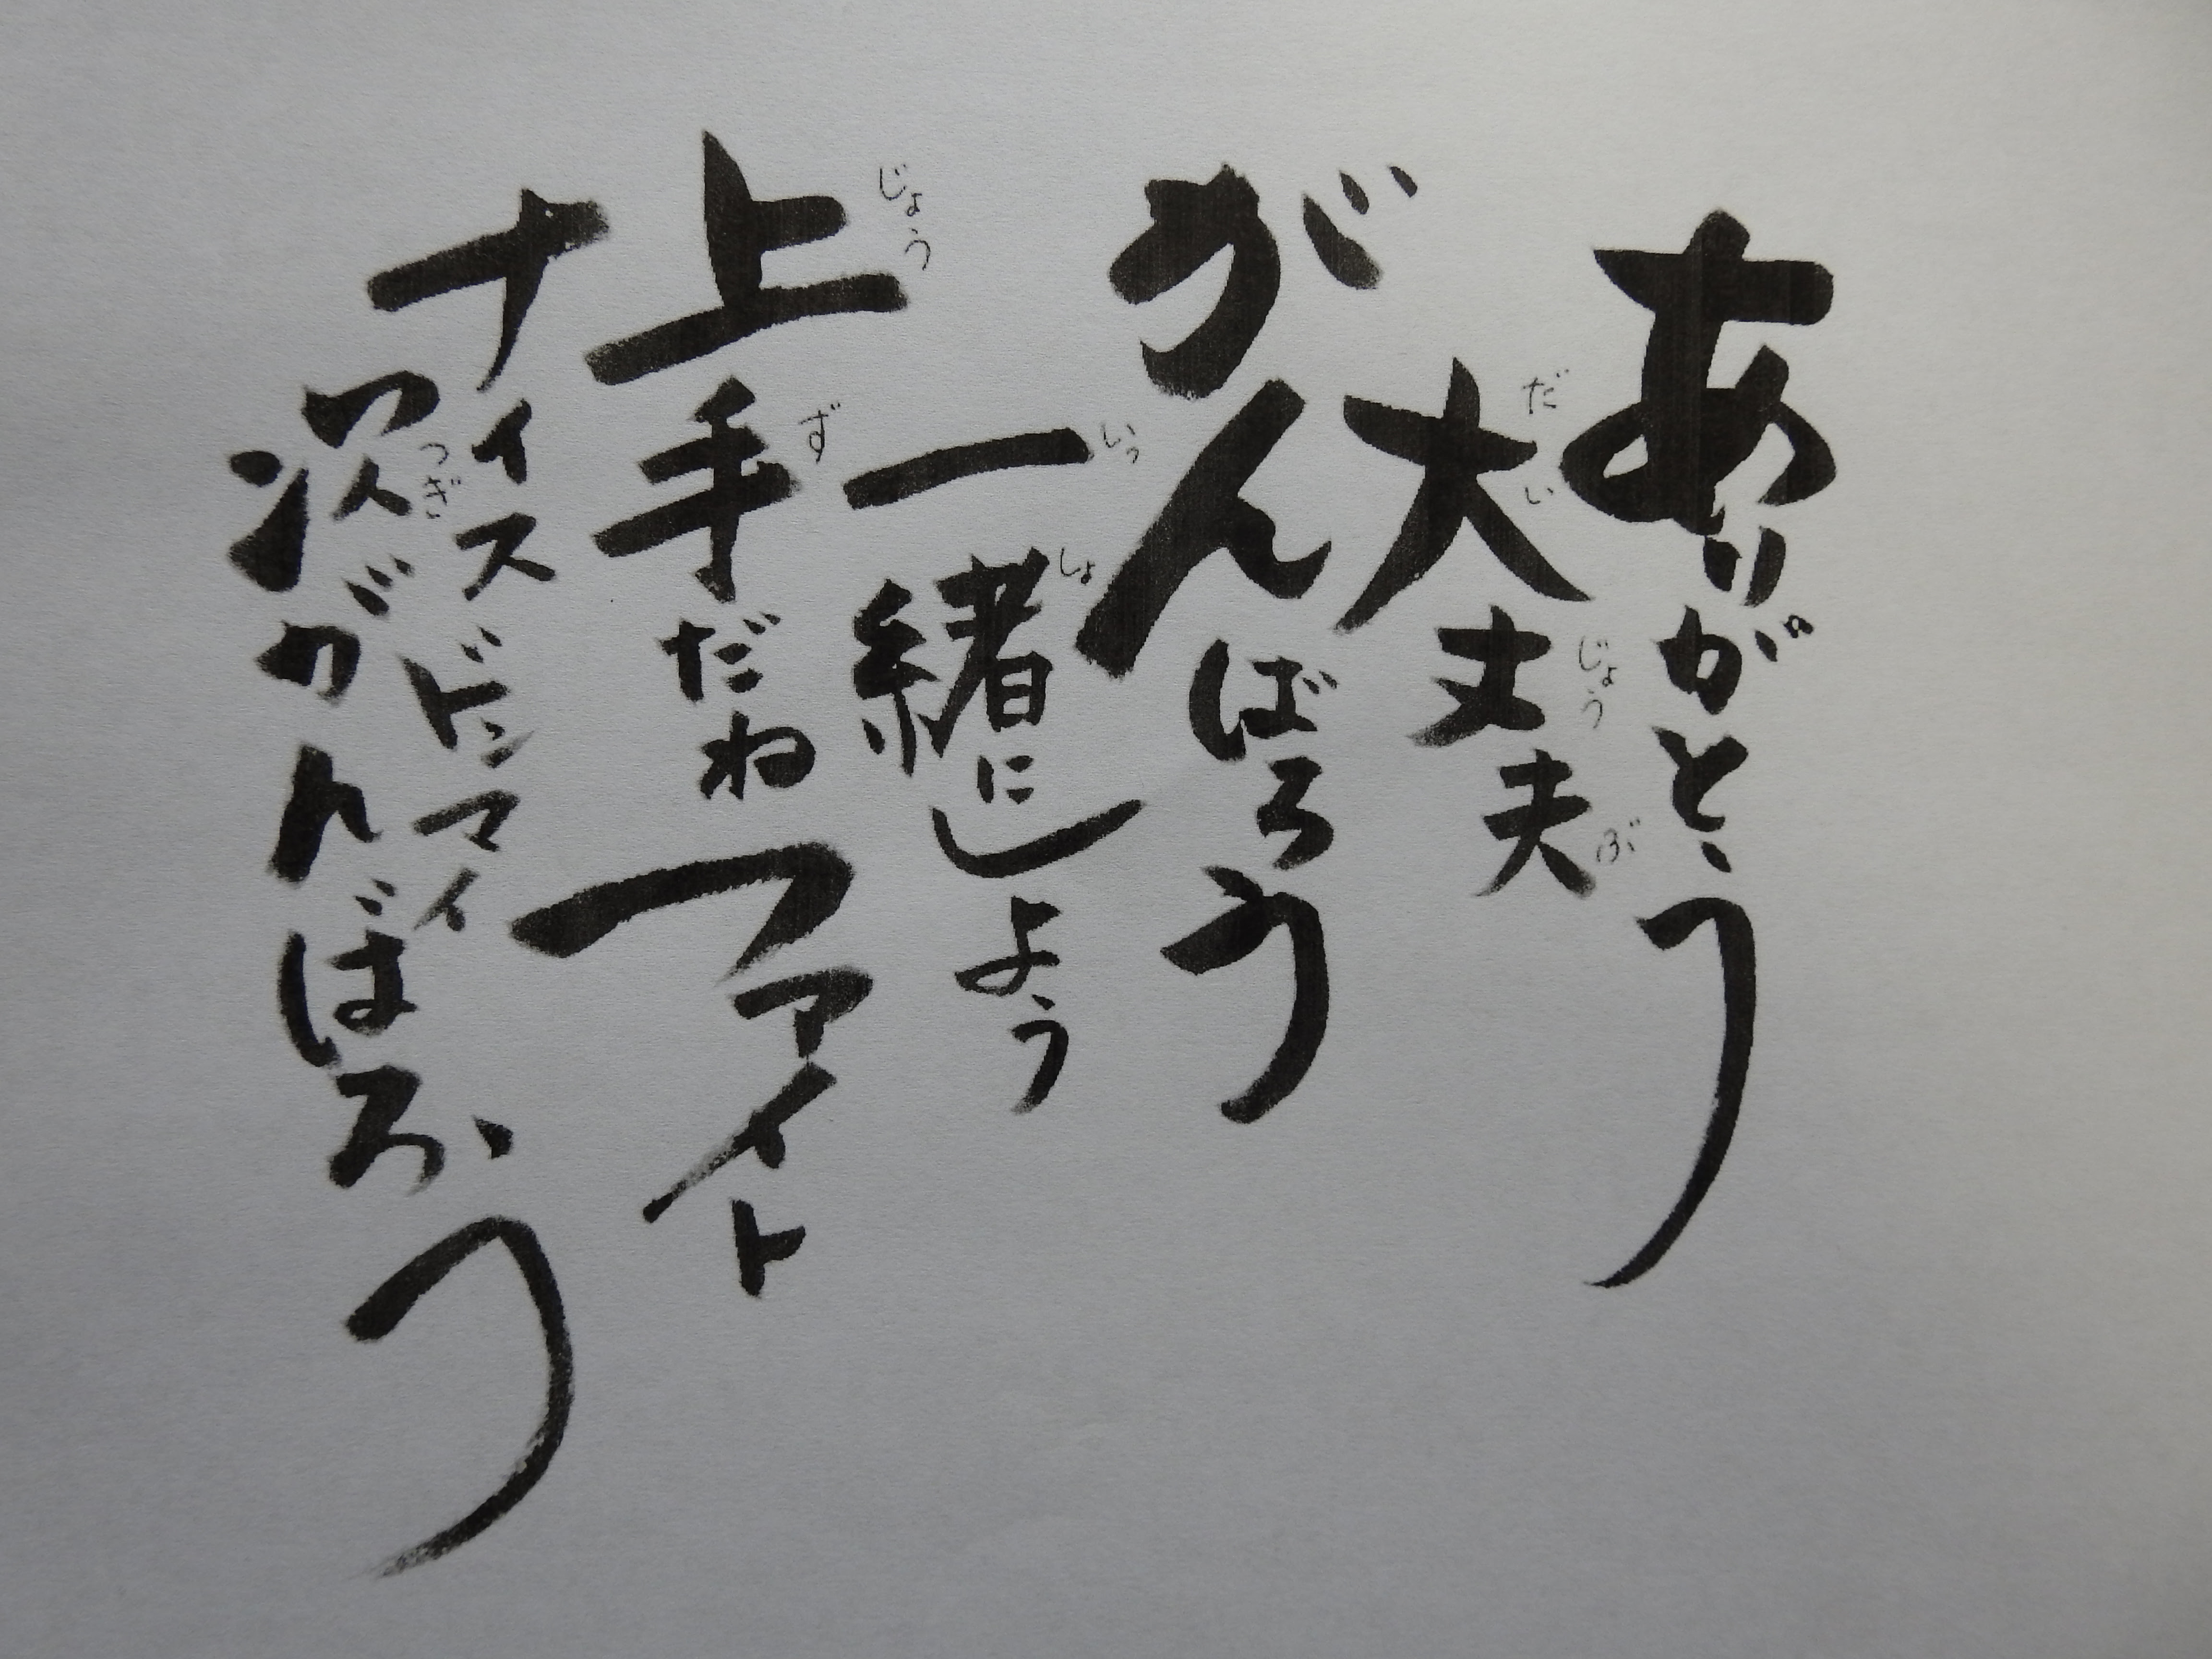 ありがとう
大丈夫
がんばろう
一緒にしよう
上手だね
ファイト
ナイス
ドンマイ
次がんばろう
だい
じょう
ぶ
いっ
しょ
じょう
ず
つぎ